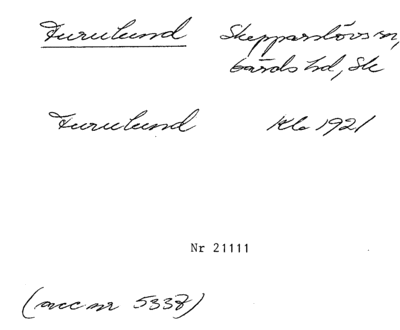 Furulund Skepparslövs sn,
Gärds hd, Sk
Furulund Kla 1921
Nr 21111
(acc nr 5338)